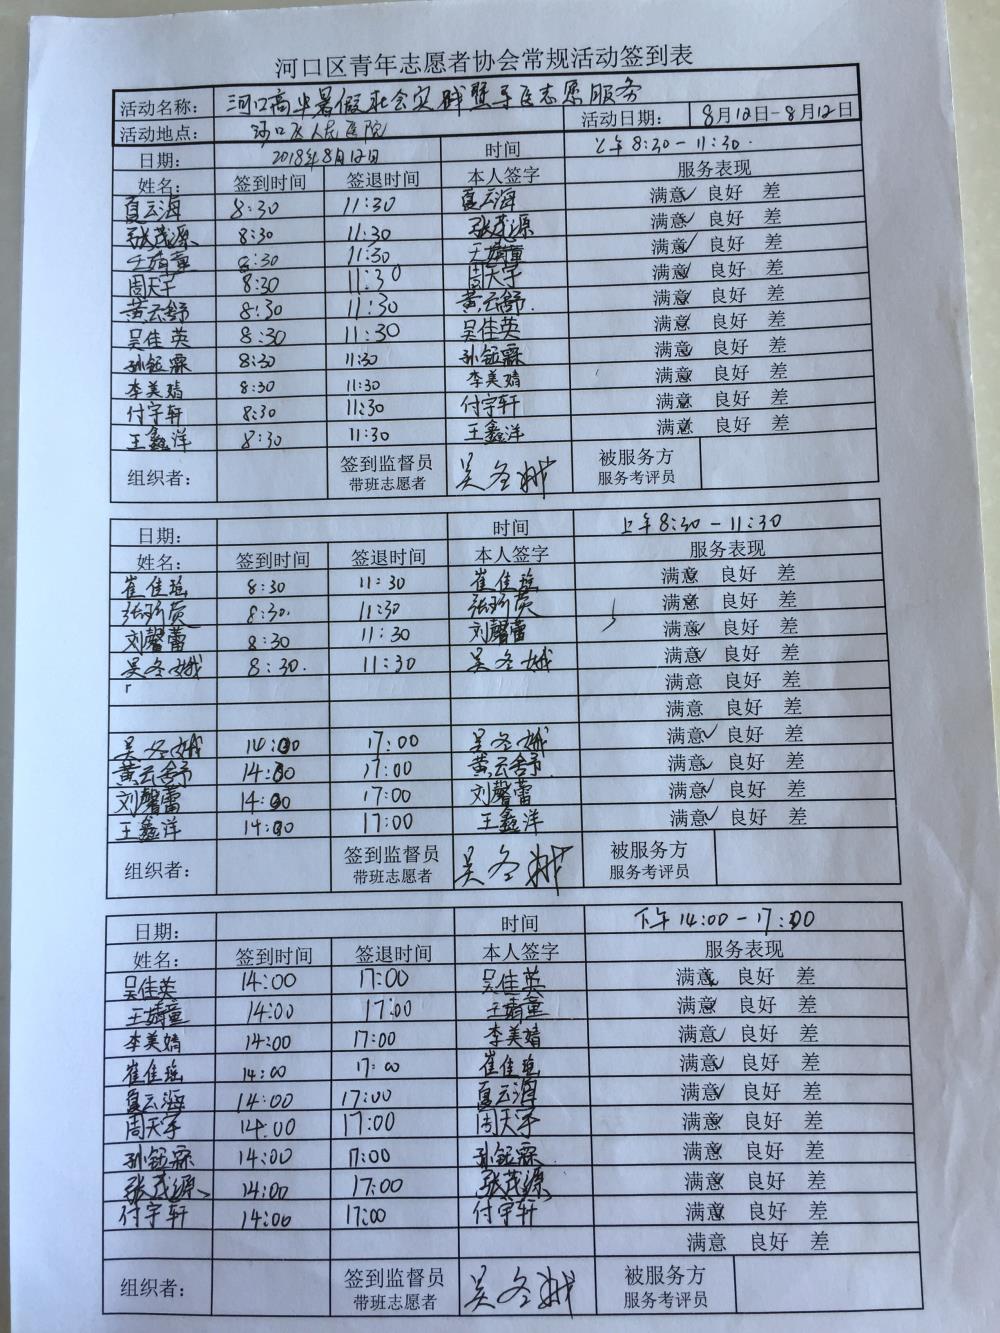 河口区青年志愿者协会常规活动签到表
活动名称： 河口高中暑假社会实践暨导医志愿服务
活动地点： 河口区人民医院 活动日期： 8月12日-8月12日
日期： 2018年8月12日 时间 上午8:30-11:30.
姓名： 签到时间 签退时间 本人签字 服务表现
夏云海 8:30 11:30 夏云海 满意✓ 良好 差
张茂源 8:30 11:30 张茂源 满意✓ 良好 差
王婧童 8:30 11:30 王婧童 满意✓ 良好 差
周天宇 8:30 11:30 周天宇 满意✓ 良好 差
黄云舒 8:30 11:30 黄云舒. 满意✓ 良好 差
吴佳英 8:30 11:30 吴佳英 满意✓ 良好 差
孙钰霖 8:30 11:30 孙钰霖 满意✓ 良好 差
李美婧 8:30 11:30 李美婧 满意✓ 良好 差
付宇轩 8:30 11:30 付宇轩 满意✓ 良好 差
王鑫洋 8:30 11:30 王鑫洋 满意✓ 良好 差
组织者： 签到监督员 吴冬娥 被服务方
带班志愿者 服务考评员
日期： 时间 上午8:30-11:30
姓名： 签到时间 签退时间 本人签字 服务表现
崔佳瑶 8:30 11:30 崔佳瑶 满意✓ 良好 差
8:30. 11:30 满意✓ 良好 差
刘馨蕾 8:30 11:30 刘馨蕾 满意✓ 良好 差
吴冬娥 8:30. 11:30 吴冬娥 满意✓ 良好 差
满意 良好 差
满意 良好 差
吴冬娥 14:00 17:00 吴冬娥 满意✓ 良好 差
黄云舒 14:00 17:00 黄云舒 满意✓ 良好 差
刘馨蕾 14:00 17:00 刘馨蕾 满意✓ 良好 差
王鑫洋 14:00 17:00 王鑫洋 满意✓ 良好 差
组织者： 签到监督员 吴冬娥 被服务方
带班志愿者 服务考评员
日期： 时间 下午14:00-17:00
姓名： 签到时间 签退时间 本人签字 服务表现
吴佳英 14:00 17:00 吴佳英 满意✓ 良好 差
王婧童 14:00 17:00 王婧童 满意✓ 良好 差
李美婧 14:00 17:00 李美婧 满意✓ 良好 差
崔佳瑶 14:00 17:00 崔佳瑶 满意✓ 良好 差
夏云海 14:00 17:00 夏云海 满意✓ 良好 差
周天宇 14:00 17:00 周天宇 满意✓ 良好 差
孙钰霖 14:00 17:00 孙钰霖 满意✓ 良好 差
张茂源 14:00 17:00 张茂源 满意✓ 良好 差
付宇轩 14:00 17:00 付宇轩 满意✓ 良好 差
满意 良好 差
组织者： 签到监督员 吴冬娥 被服务方
带班志愿者 服务考评员